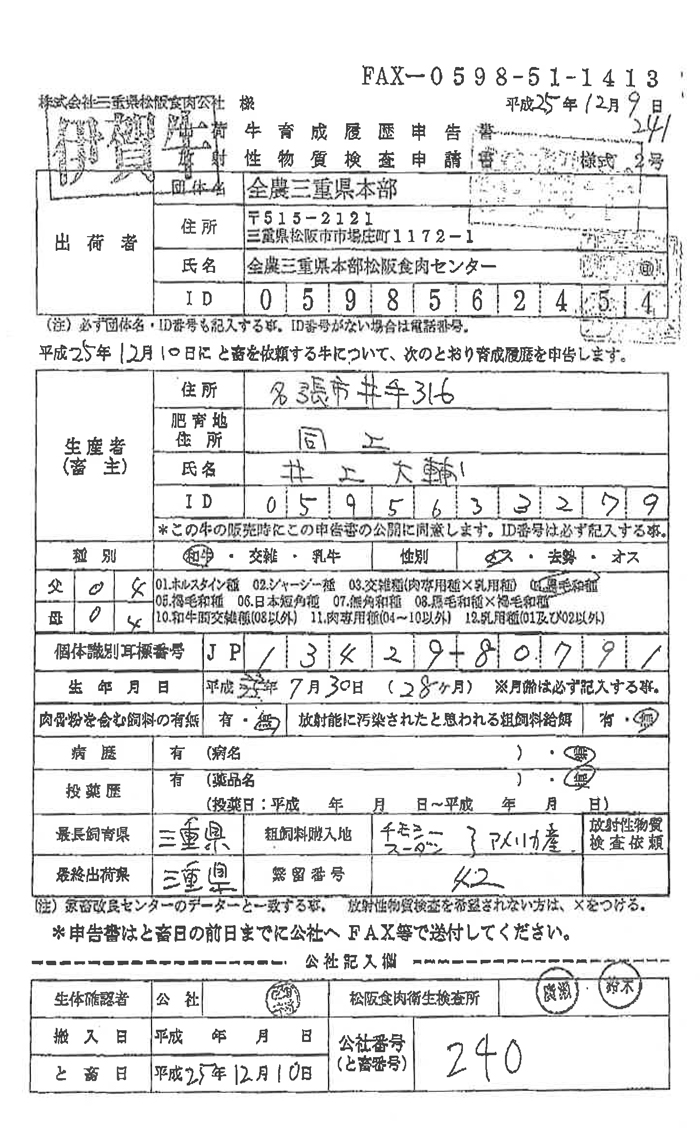 FAX－0598-51-1413
株式会社三重県松阪食肉公社 様
平成25年12月9日
241
伊賀牛
出荷牛育成履歴申告書
放射性物質検査申請書
様式 2号
出荷者
団体名 全農三重県本部
住所 〒515-2121
三重県松阪市市場庄町1172-1
氏名 全農三重県本部松阪食肉センター
ID 0598562454
(注) 必ず団体名・ID番号も記入する事。ID番号がない場合は電話番号。
平成25年12月10日に と畜を依頼する牛について、次のとおり育成履歴を申告します。
生産者
(畜主)
住所 名張市井手316
肥育地
住所 同上
氏名 井上大輔
ID 0595633279
*この牛の販売時にこの申告書の公開に同意します。ID番号は必ず記入する事。
種別 和牛・交雑・乳牛 性別 メス・去勢・オス
父 04 母 04
01.ホルスタイン種 02.ジャージー種 03.交雑種(肉専用種×乳用種) 04.黒毛和種
05.褐毛和種 06.日本短角種 07.無角和種 08.黒毛和種×褐毛和種
10.和牛間交雑種(08以外) 11.肉専用種(04～10以外) 12.乳用種(01及び02以外)
個体識別耳標番号 JP 13429-80791
生年月日 平成 年7月30日 (28ヶ月) ※月齢は必ず記入する事。
肉骨粉を含む飼料の有無 有・無 放射能に汚染されたと思われる粗飼料給餌 有・無
病歴 有 (病名 )・無
投薬歴 有 (薬品名 )・無
(投薬日：平成 年 月 日～平成 年 月 日)
最長飼育県 三重県 粗飼料購入地 チモシー スーダン } アメリカ産 放射性物質
検査依頼
最終出荷県 三重県 繋留番号 42
(注) 家畜改良センターのデーターと一致する事。 放射性物質検査を希望されない方は、×をつける。
*申告書はと畜日の前日までに公社へFAX等で送付してください。
公社記入欄
生体確認者 公社 松阪食肉衛生検査所 廣瀬・鈴木
搬入日 平成 年 月 日
と畜日 平成25年12月10日
公社番号
(と畜番号) 240